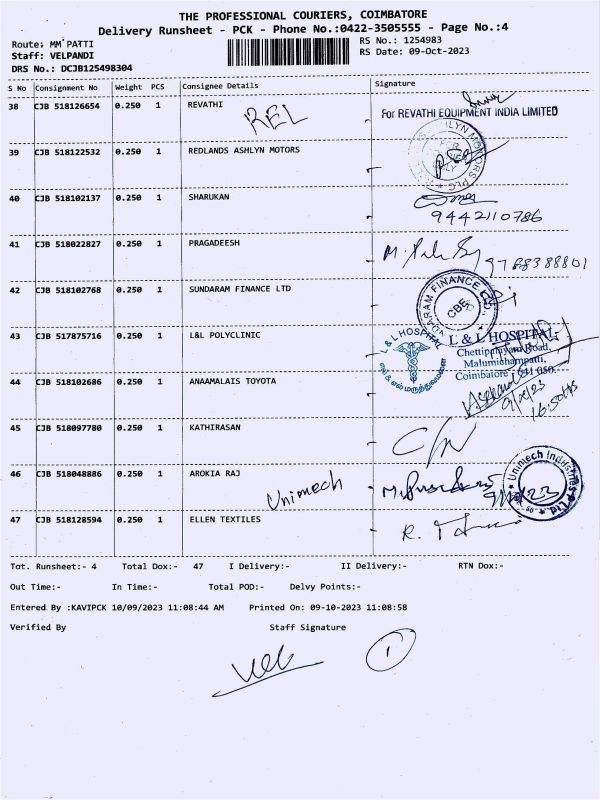 THE PROFESSIONAL COURIERS, COIMBATORE
Delivery Runsheet - PCK - Phone No.:0422-3505555 - Page No.:4
Route: MM PATTI
RS No.: 1254983
Staff: VELPANDI
RS Date: 09-Oct-2023
DRS No.: DCJB125498304
S No Consignment No Weight PCS Consignee Details Signature
38 CJB 518126654 0.250 1 REVATHI
REL
For REVATHI EQUIPMENT INDIA LIMITED
39 CJB 518122532 0.250 1 REDLANDS ASHLYN MOTORS
40 CJB 518102137 0.250 1 SHARUKAN
9442110786
41 CJB 518022827 0.250 1 PRAGADEESH
9788388801
42 CJB 518102768 0.250 1 SUNDARAM FINANCE LTD
CBE
43 CJB 517875716 0.250 1 L&L POLYCLINIC
L & L HOSPITAL
L & L HOSPITAL
Chettippalayam Road,
Malumichampatti,
Coimbatore - 641 050.
44 CJB 518102686 0.250 1 ANAAMALAIS TOYOTA
45 CJB 518097780 0.250 1 KATHIRASAN
46 CJB 518048886 0.250 1 AROKIA RAJ
Unimech
Unimech Industries
47 CJB 518128594 0.250 1 ELLEN TEXTILES
Tot. Runsheet:- 4 Total Dox:- 47 I Delivery:- II Delivery:- RTN Dox:-
Out Time:- In Time:- Total POD:- Delvy Points:-
Entered By :KAVIPCK 10/09/2023 11:08:44 AM Printed On: 09-10-2023 11:08:58
Verified By Staff Signature
1